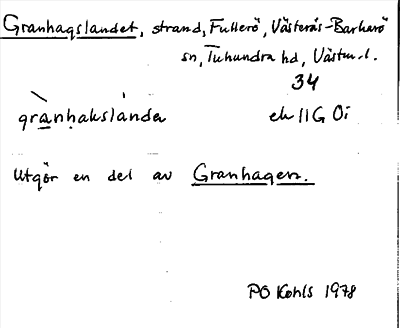 Granhagslandet, strand, Fullerö, Västerås-Barkarö
sn, Tuhundra hd, Västm.l.
34
granhakslànda
ek 11G 0i
Utgör en del av Granhagen.
PO Kohls 1978